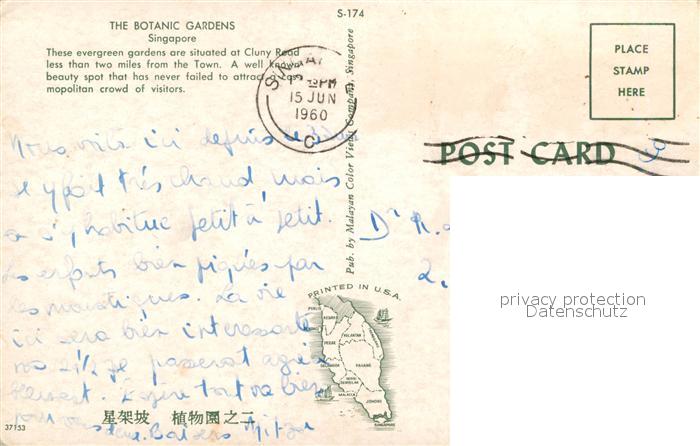 S-174
THE BOTANIC GARDENS
Singapore
These evergreen gardens are situated at Cluny Road
less than two miles from the Town. A well known
beauty spot that has never failed to attract a cos-
mopolitan crowd of visitors.
15 JUN
1960
C
PLACE
STAMP
HERE
POST CARD
Pub. by Malayan Color Views Company, Singapore
Nous voilà ici depuis le
Il y fait très chaud, mais
on s'y habitue petit à petit.
Les enfants bien piqués par
les moustiques. La vie
ici sera bien intéressante
Dr R.
2,
PRINTED IN U.S.A.
PERLIS
KEDAH
PERAK
KELANTAN
PAHANG
SELANGOR
NEGRI
SEMBILAN
MALACCA
JOHORE
SINGAPORE
privacy protection
Datenschutz
blement. J'espère tout va bien
pour vous
Baisers
星架坡 植物園之二
37153